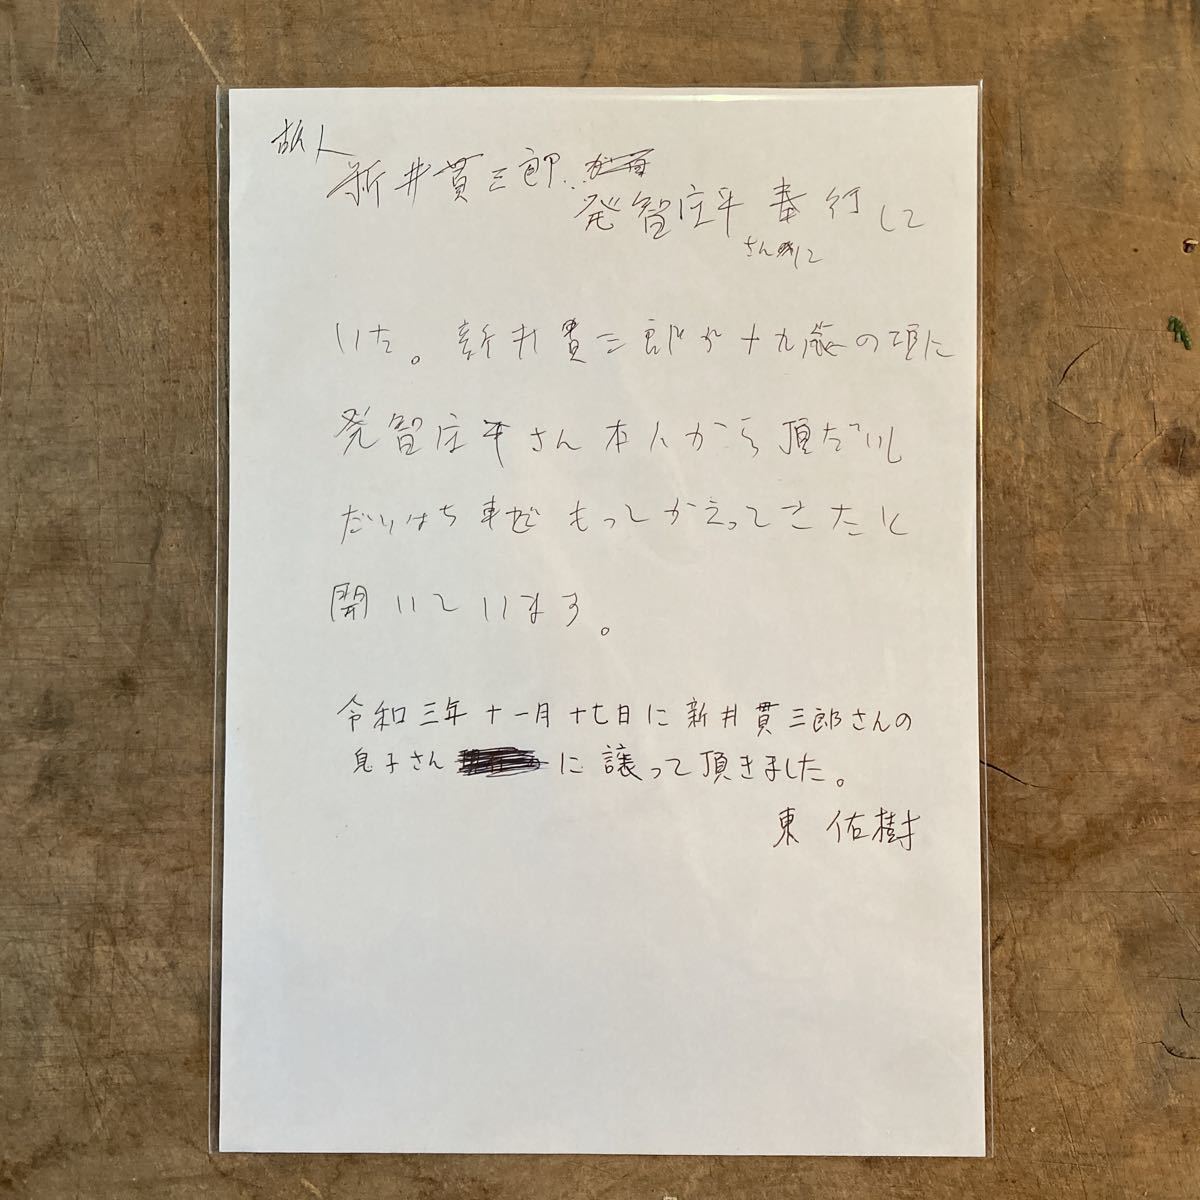 故人
新井貫三郎
発智庄平 奉行して
さん
いた。新井貫三郎が十九歳の頃に
発智庄平さん本人から頂だいし
だいはち車でもってかえってきたと
聞いています。
令和三年十一月十七日に新井貫三郎さんの
息子さん に譲って頂きました。
東 佑樹